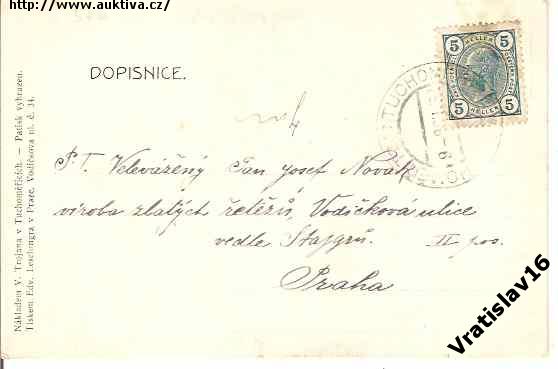 http://www.auktiva.cz/
DOPISNICE.
5 HELLER 5
5 HELLER 5
TUCHOM
P. T. Velevážený Pan Josef Novák
výroba zlatých řetězů, Vodičková ulice
vedle Štajgrů. II pos.
Praha
Nákladem V. Trojana v Tuchoměřicích. — Patisk vyhrazen.
Tiskem Edv. Leschingra v Praze, Vodičkova ul. č. 34.
Vratislav16